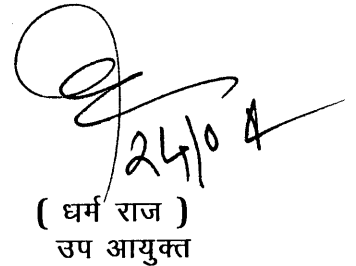 24/04
( धर्म राज )
उप आयुक्त